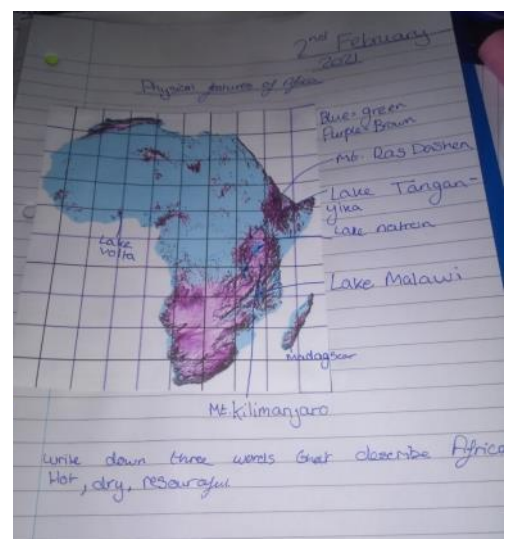 2nd February
2021
Physical features of Africa
Blue=green
Purple=Brown
Mt. Ras Dashen
Lake Tangan-
yika
Lake natron
Lake Volta
Lake Malawi
Madagscar
Mt. Kilimanjaro
write down three words that describe Africa
Hot, dry, resourceful.